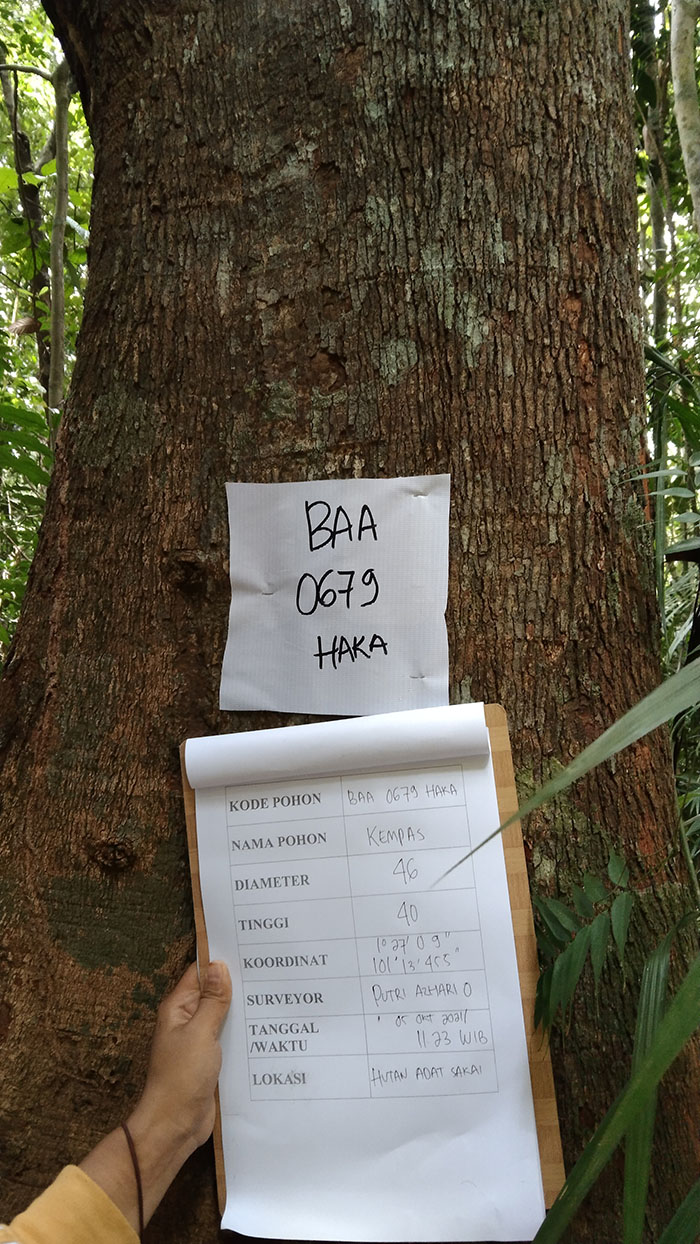 BAA
0679
HAKA
KODE POHON BAA 0679 HAKA
NAMA POHON KEMPAS
DIAMETER 46
TINGGI 40
KOORDINAT 1° 27' 0 9"
101° 13' 455"
SURVEYOR PUTRI AZHARI O
TANGGAL 05 OKT 2021/
/WAKTU 11 23 WIB
LOKASI HUTAN ADAT SAKAI